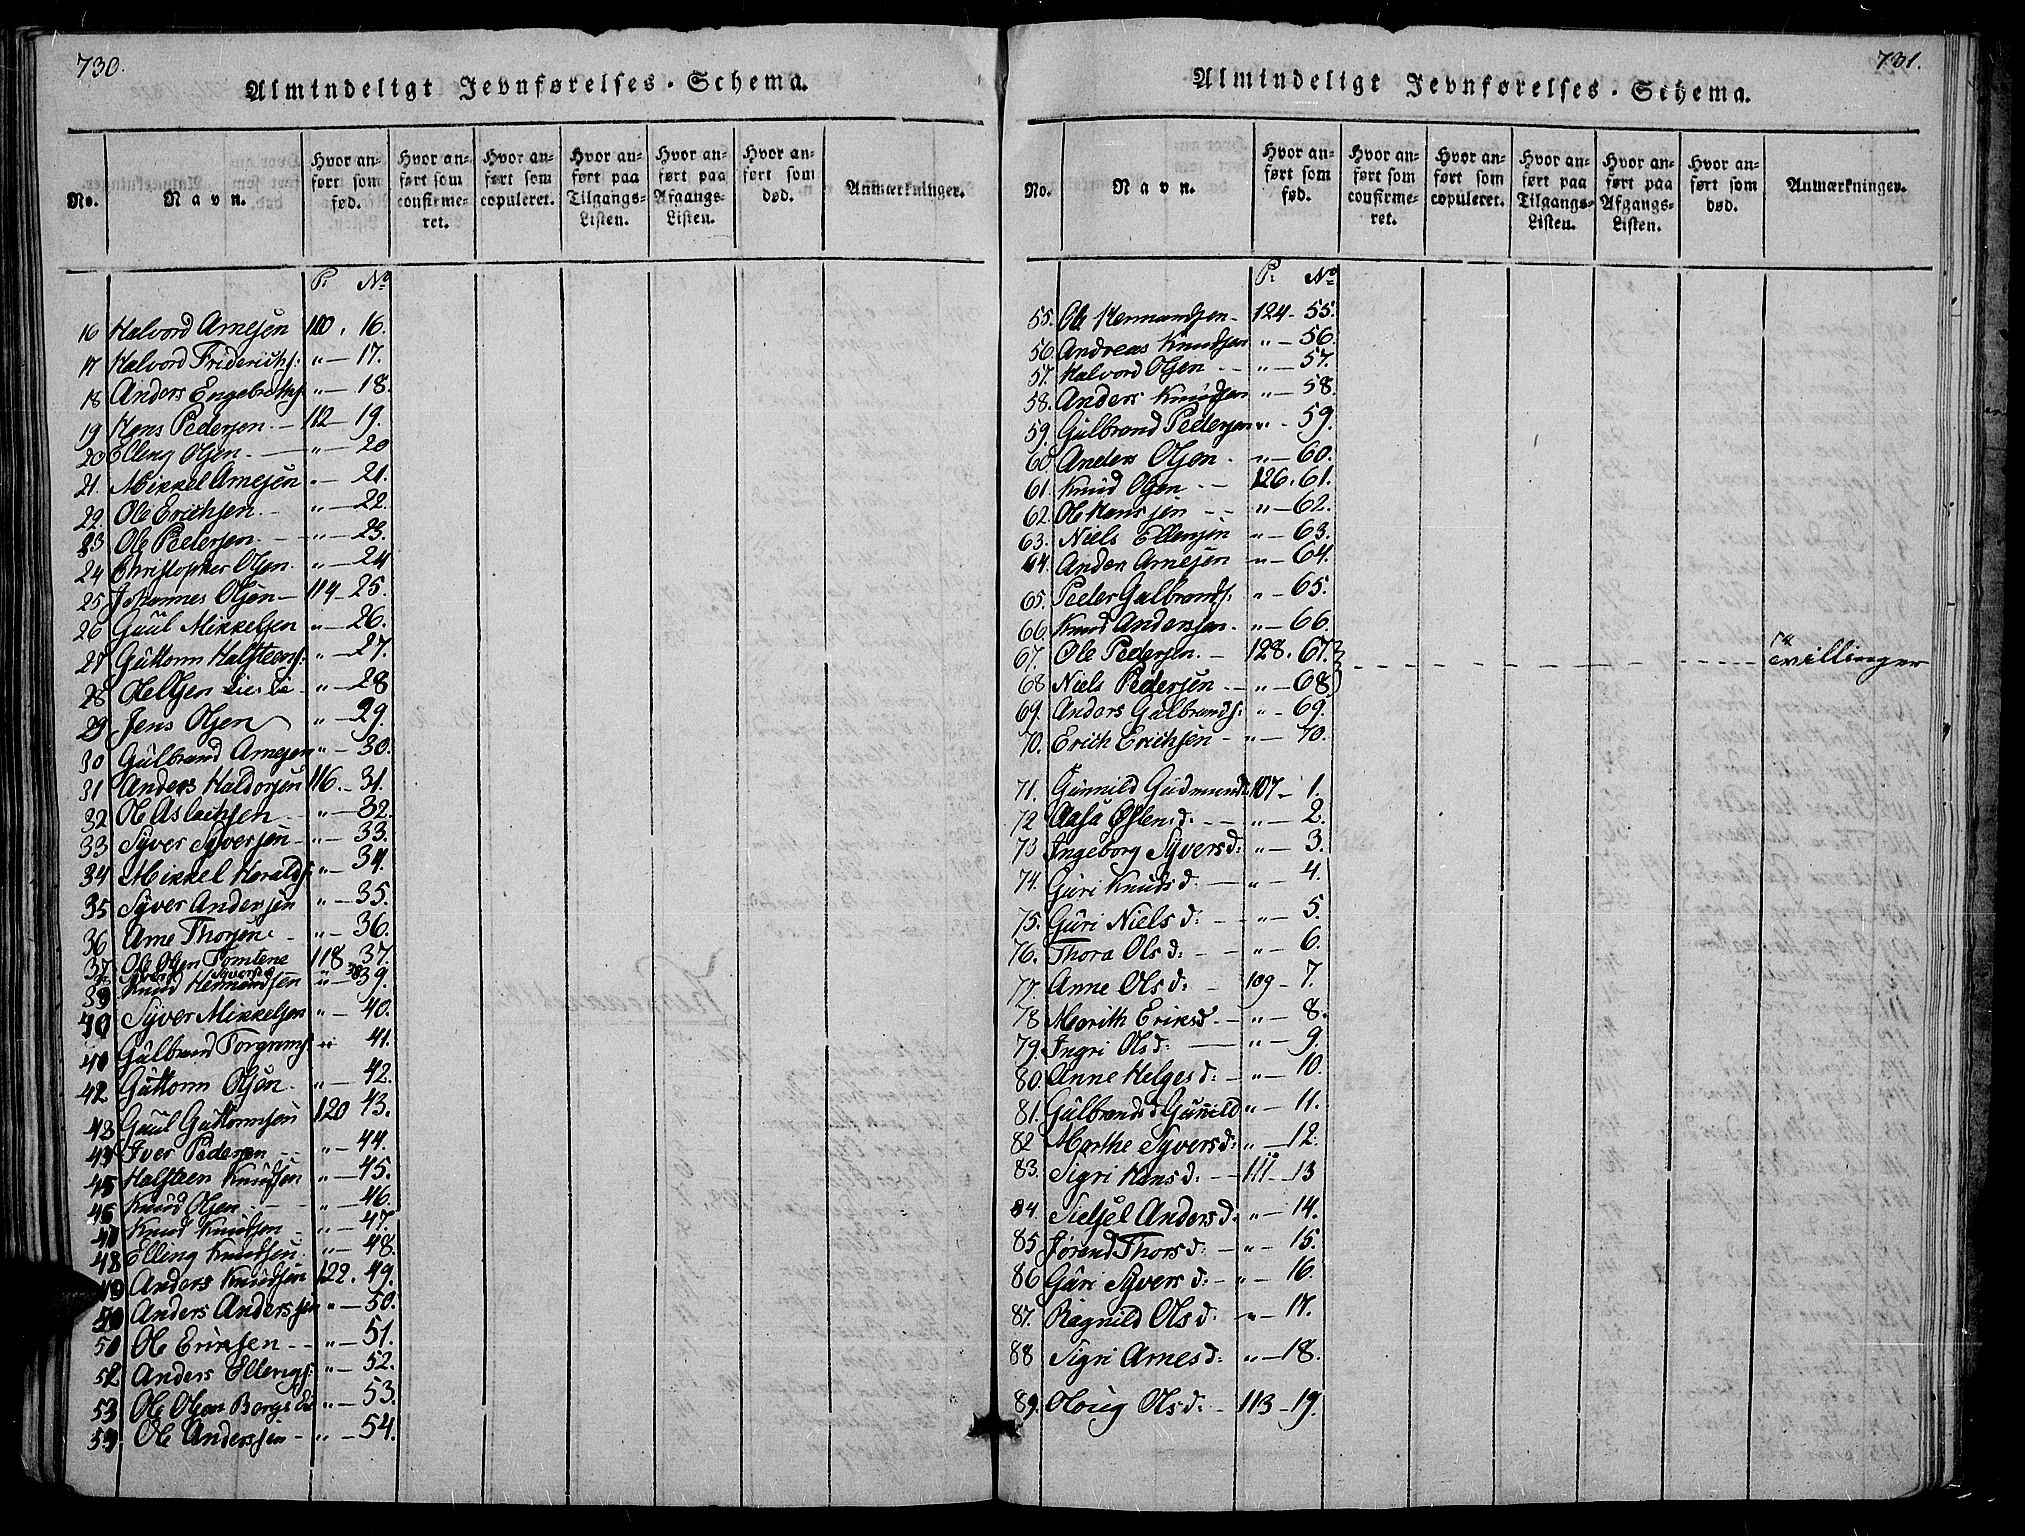 730.
Almindeligt Jevnførelses-Schema.
No.
Navn.
Hvor anført som fød.
Hvor anført som confirmeret.
Hvor anført som copuleret.
Hvor anført paa Tilgangs-Listen.
Hvor anført paa Afgangs-Listen.
Hvor anført som død.
Anmærkninger.
P. No
16 Halvord Arnesen 110. 16.
17 Halvord Friderichs: " — 17.
18 Anders Engebretss " — 18.
19 Hans Pedersen — 112 — 19.
20 Elleng Olsen — " — 20
21. Mikkel Arnesen " — 21.
22. Ole Erichsen — " — 22.
23 Ole Pedersen — " — 23.
24 Christopher Olsen. " — 24
25 Johannes Olsen — 114 — 25.
26 Guul Mikkelsen " — 26.
27 Guttorm Halsteens: " — 27.
28 " — 28
29 Jens Olsen " — 29.
30 Gulbrand Arnesen " — 30.
31 Anders Haldorsen 116. — 31.
32 Ole Aslachsen " — 32.
33 Syver Syversen — " — 33.
34 Mikkel Haralds: " — 34.
35 Syver Andersen " — 35.
36 Arne Thorsen — " — 36.
37 Ole Olsen Tomtene 118 — 37.
38 Syver Syversen " 38
39 Knud Hermandsen " — 39.
40 Syver Mikkelsen " — 40.
41 Gulbrand Torgrims: " 41.
42 Guttorm Olsen — " — 42.
43 Guul Guttormsen 120 43.
44 Iver Pedersen — " — 44.
45 Halsteen Knudsen " — 45.
46 Knud Olsen — " — 46.
47 Knud Knudsen — " — 47.
48 Elleng Knudsen " — 48.
49 Anders Knudsen 122. 49.
50 Anders Anderssen " — 50.
51 Ole Eriksen — " — 51.
52 Anders Ellengs: " — 52.
53 Ole Olsen Bergs " — 53.
54 Ole Anderssen — " — 54.
731.
Almindeligt Jevnførelses-Schema.
No.
Navn.
Hvor anført som fød.
Hvor anført som confirmeret.
Hvor anført som copuleret.
Hvor anført paa Tilgangs-Listen.
Hvor anført paa Afgangs-Listen.
Hvor anført som død.
Anmærkninger.
P: No
55. Ole Hermandsen — 124 — 55.
56. Andreas Knudsen " — 56.
57. Halvord Olsen — " — 57.
58. Anders Knudsen " — 58.
59. Gulbrand Pedersen " . 59.
60. Anders Olsen — " — 60.
61. Knud Olsen — 126. 61.
62. Ole Hanssen — " — 62.
63. Niels Ellensen " — 63.
64. Anders Arnesen " — 64.
65. Peder Gulbrands: " — 65.
66. Knud Anderssen. " — 66.
67. Ole Pedersen. — 128. 67. Tvillinger
68 Niels Pedersen — " — 68
69. Anders Gulbrands: " — 69.
70. Erich Erichsen — " — 70.
71. Gunnild Gudmunds 107 — 1.
72 Aasa Østens d: — " — 2.
73 Ingeborg Syvers d: " — 3.
74. Guri Knuds d. — " — 4.
75. Guri Niels d: — " — 5.
76. Thora Ols d: — " — 6.
77. Anne Ols d: — 109 — 7.
78 Marith Eriks d. — " — 8.
79. Ingri Ols d: — " — 9.
80. Anne Helges d: — " — 10.
81. Gulbrands d Gunild " — 11.
82 Marthe Syvers d: " — 12.
83. Sigri Hans d: — 111 — 13
84. Sidsel Anders d: " — 14.
85 Jørend Thors d: — " — 15.
86 Guri Syvers d: — " — 16.
87. Ragnild Ols d: — " — 17.
88 Sigri Arnes d: " — 18.
89. Ols d: — 113 — 19.